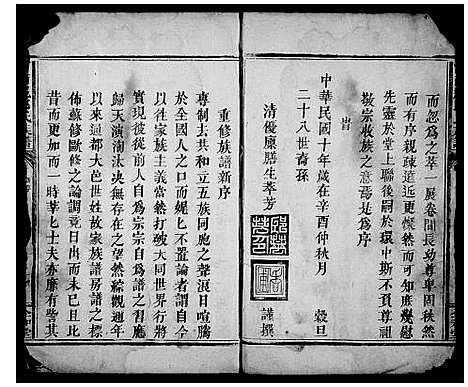 而忽爲之萃一展卷間長幼尊卑固秩然
而有序親疎遠近更燦然而可知庶幾慰
先靈於堂上聯後嗣於環中斯不負尊祖
敬宗收族之意焉是爲序
旹
中華民國十年歲在辛酉仲秋月 穀旦
二十八世裔孫
清優廩膳生萃芳 謹撰
重修族譜新序
專制去共和立五族同胞之聲浪日喧騰
於全國人之口而娓匕不置論者謂自今
以往家族主義當然打破大同世界行將
實現彼從前人自爲宗宗自爲譜之習應
歸天演淘汰决無存在之望然綜觀連年
以來通都大邑世姓故家族譜房譜之標
佈蘇修歐修之論調竟日出而未已且比
昔而更加而一時莘匕士夫亦靡有訾其